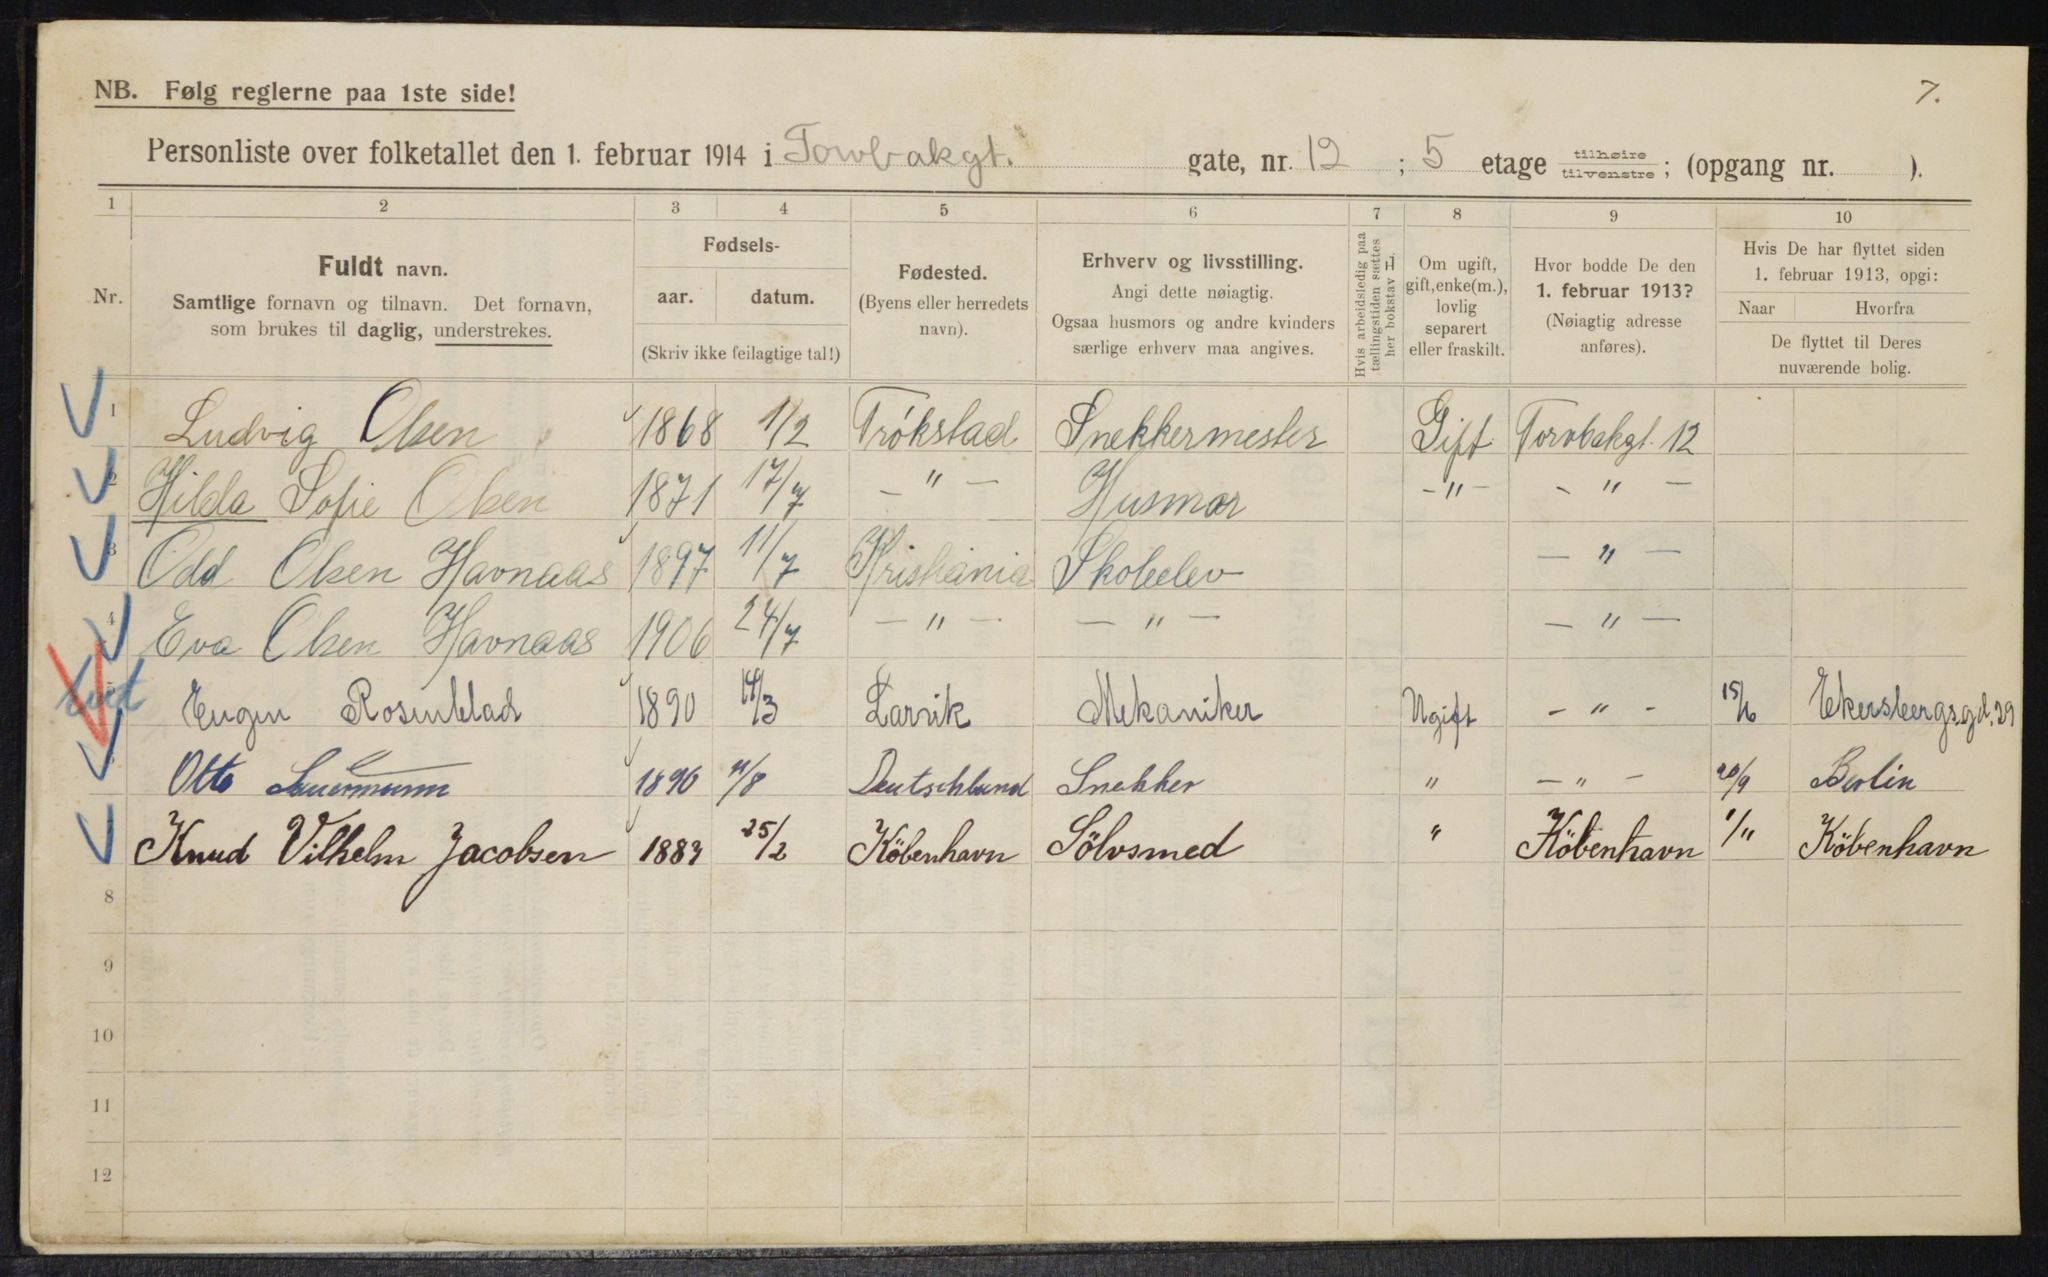 NB. Følg reglerne paa 1ste side!
7.
Personliste over folketallet den 1. februar 1914 i Torvbakgt. gate, nr. 12 ; 5 etage tilhøire tilvenstre ; (opgang nr. ).
1 2 3 4 5 6 7 8 9 10
Nr.
Fuldt navn.
Samtlige fornavn og tilnavn. Det fornavn,
som brukes til daglig, understrekes.
Fødsels-
aar. datum.
(Skriv ikke feilagtige tal!)
Fødested.
(Byens eller herredets
navn).
Erhverv og livsstilling.
Angi dette nøiagtig.
Ogsaa husmors og andre kvinders
særlige erhverv maa angives.
Hvis arbeidsledig paa
tællingstiden sættes
her bokstav L.
Om ugift,
gift, enke(m.),
lovlig
separert
eller fraskilt.
Hvor bodde De den
1. februar 1913?
(Nøiagtig adresse
anføres).
Hvis De har flyttet siden
1. februar 1913, opgi:
Naar Hvorfra
De flyttet til Deres
nuværende bolig.
1 Ludvig Olsen 1868 1/2 Trókstad Snekkermester Gift Torvbakgt. 12
2 Hilda Sofie Olsen 1871 17/7 — " — Husmor — " — — " —
3 Odd Olsen Havnaas 1897 11/7 Kristiania Skoleelev — " —
4 Eva Olsen Havnaas 1906 24/7 — " — — " — — " —
5 Eugen Rosenblad 1890 14/3 Larvik Mekaniker Ugift — " — 15/6 Ekersbergsgd. 29
Otto 1890 11/8 Deutschland Snekker " — " — 20/9 Berlin
Knud Vilhelm Jacobsen 1883 25/2 Köbenhavn Sölvsmed " Köbenhavn 1/11 Köbenhavn
8
9
10
11
12